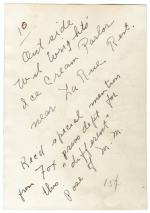 10
Out side
Wil Wright's
Ice Cream Parlor
near La Rue Rest.
Rec'd special mention
from Fox press dept. for
this "different"
Pose of M.M.
154